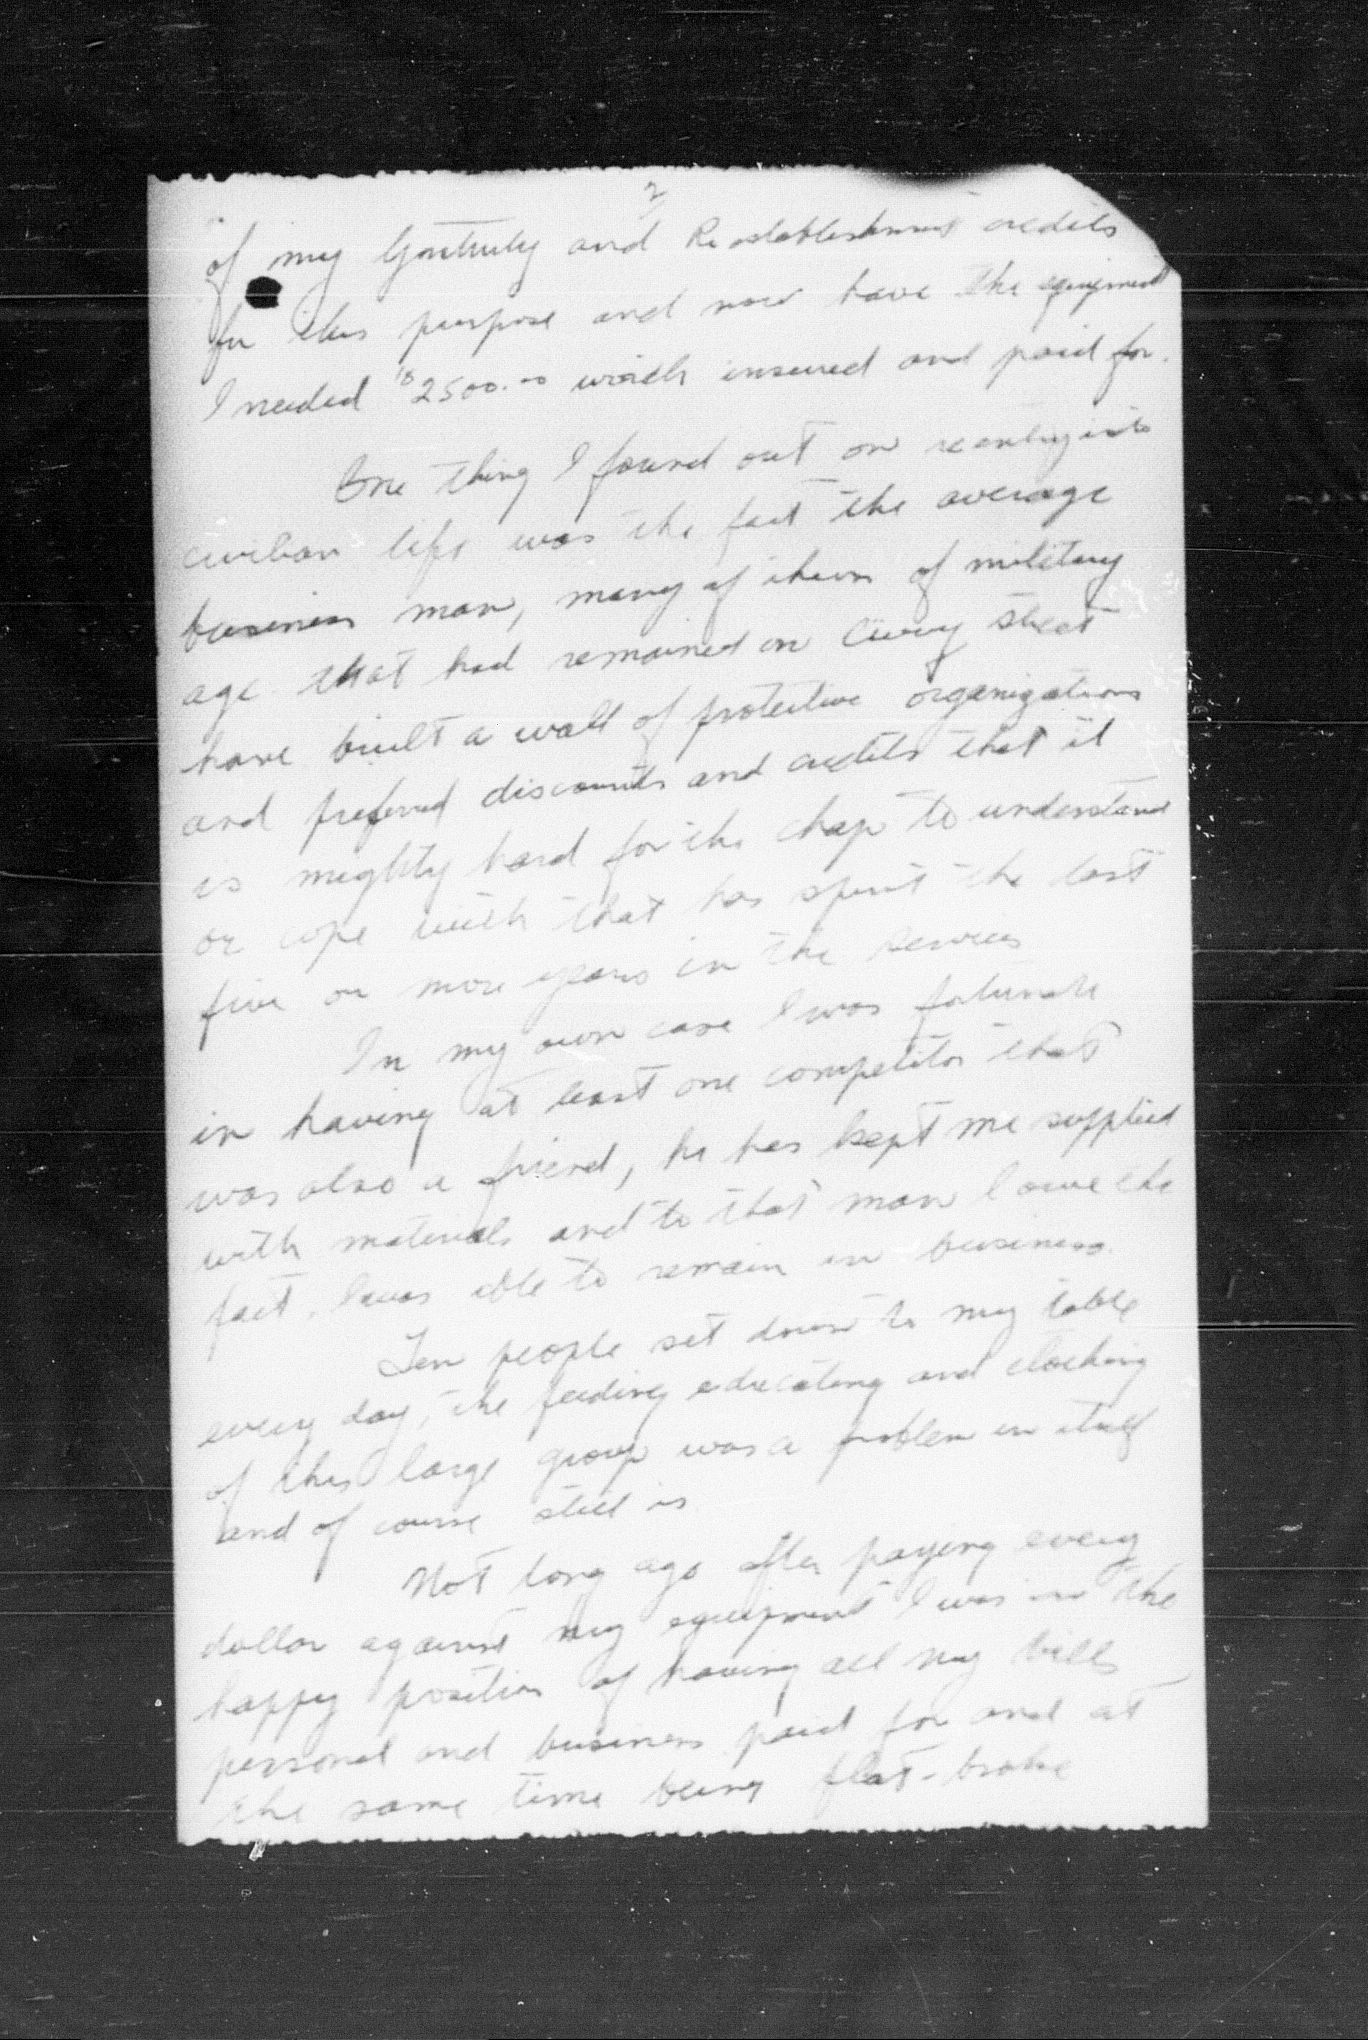 2
of my Gratuity and Reestablishment credits
for this purpose and now have the equipment
I needed 2500.00 worth insured and paid for.
One thing I found out on reentry into
civilian life was the fact the average
business man, many of them of military
age that had remained on Civvy Street
have built a wall of protective organizations
and preferred discounts and credits that it
is mighty hard for the chap to understand
or cope with that has spent the last
five or more years in the services
In my own case I was fortunate
in having at least one competitor that
was also a friend, he has kept me supplied
with materials and to that man I owe the
fact I was able to remain in business.
Ten people set down to my table
every day, the feeding educating and clothing
of this large group was a problem in itself
and of course still is
Not long ago after paying every
dollar against my equipment I was in the
happy position of having all my bills
personal and business paid for and at
the same time being flat-broke